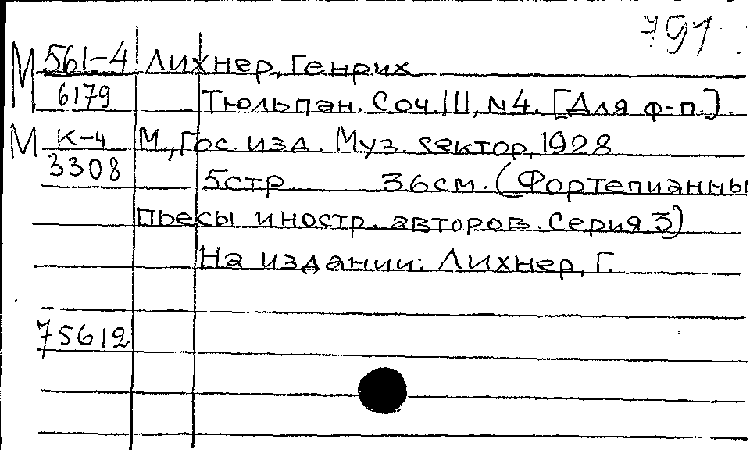 791
М 561-4 Лихнер, Генрих
6179 Тюльпан. Соч. 111, N4. [Для ф-п.]
М К-4 М., Гос. изд. Муз. сектор, 1928
3308 5 стр 36 см. (Фортепианны
пьесы иностр. авторов. Серия 3)
На издании: Лихнер, Г.
75612